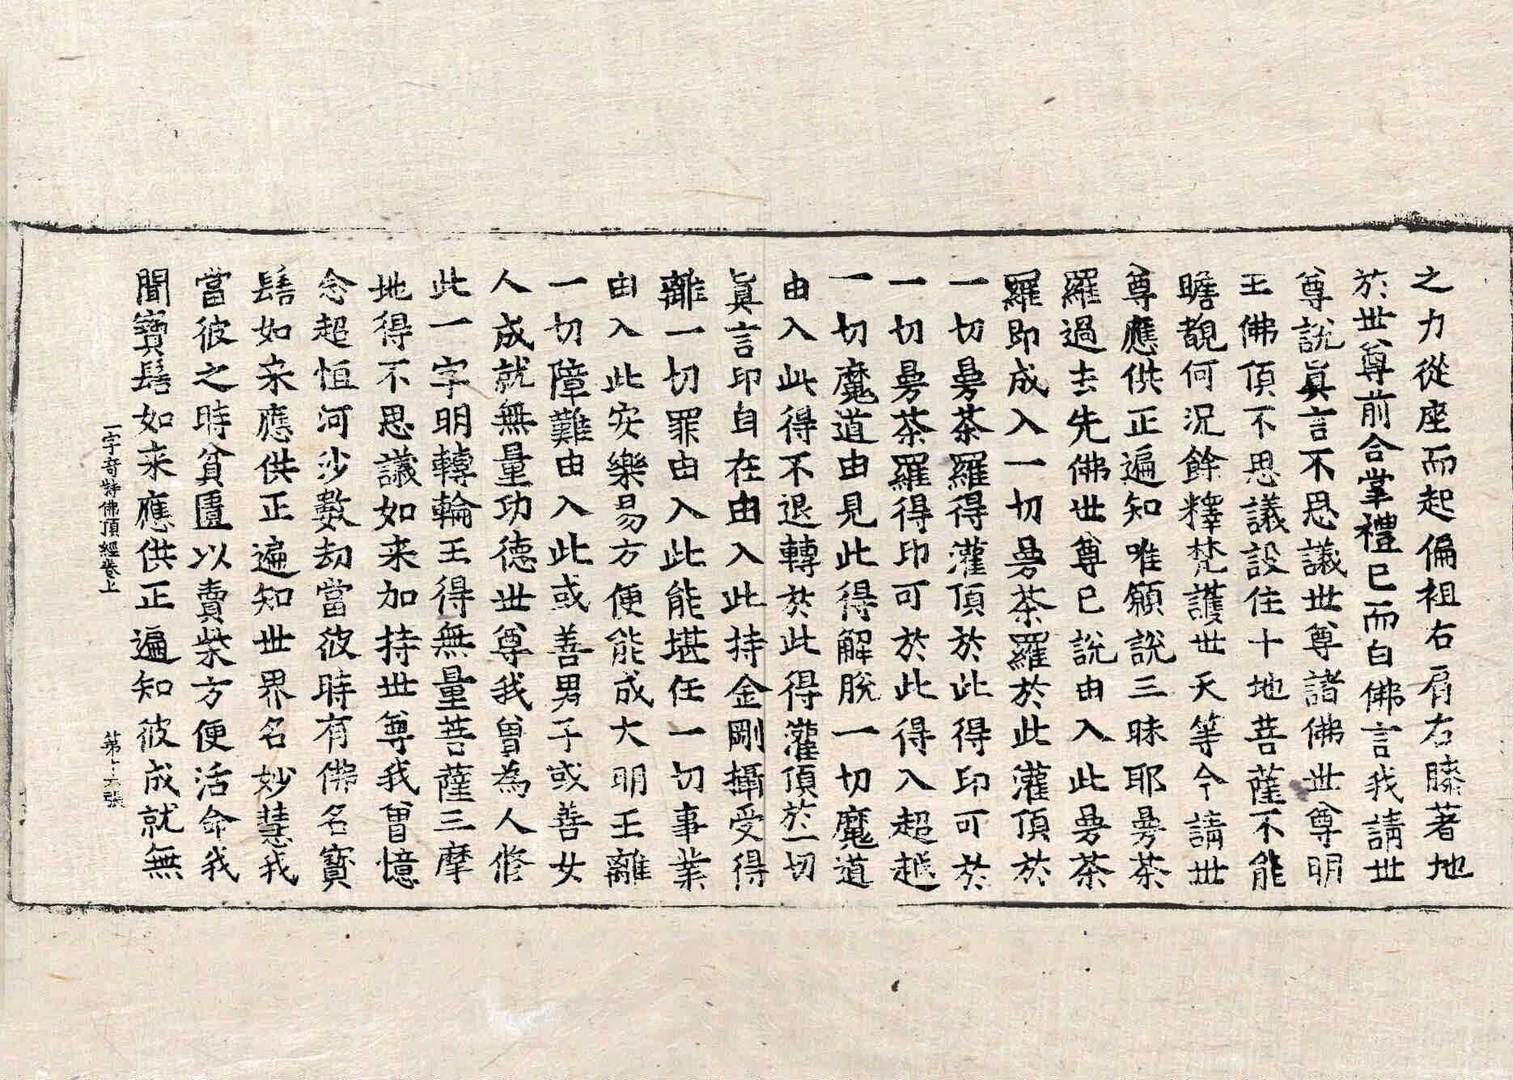 之力從座而起偏袒右肩右膝著地
於世尊前合掌禮已而白佛言我請世
尊說眞言不思議世尊諸佛世尊明
王佛頂不思議設住十地菩薩不能
瞻覩何況餘釋梵護世天等今請世
尊應供正遍知唯願說三昧耶曼茶
羅過去先佛世尊已說由入此曼茶
羅即成入一切曼茶羅於此灌頂於
一切曼茶羅得灌頂於此得印可於
一切曼茶羅得印可於此得入超越
一切魔道由見此得解脫一切魔道
由入此得不退轉於此得灌頂於一切
眞言印自在由入此持金剛攝受得
離一切罪由入此能堪任一切事業
由入此安樂易方便能成大明王離
一切障難由入此或善男子或善女
人成就無量功德世尊我曾為人修
此一字明轉輪王得無量菩薩三摩
地得不思議如来加持世尊我曾憶
念超恒河沙數劫當彼時有佛名寶
髻如来應供正遍知世界名妙慧我
當彼之時貧匱以賣柴方便活命我
聞寶髻如来應供正遍知彼成就無
一字奇特佛頂經卷上 第十六張